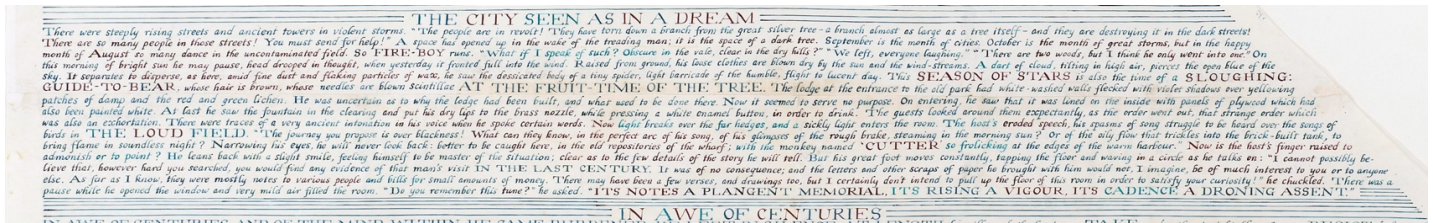 THE CITY SEEN AS IN A DREAM
There were steeply rising streets and ancient towers in violent storms. "The people are in revolt! They have torn down a branch from the great silver tree - a branch almost as large as a tree itself - and they are destroying it in the dark streets!
There are so many people in those streets! You must send for help!" A space has opened up in the wake of the treading man; it is the space of a dark tree. September is the month of cities. October is the month of great storms, but in the happy
month of August so many dance in the uncontaminated field. So FIRE-BOY runs. "What if I speak of such? Obscure in the vale, clear in the dry hills?" "We left, everyone laughing." "There are two woods, but I think he only went into one." On
this morning of bright sun he may pause, head drooped in thought, when yesterday it fronted full into the wind. Raised from ground, his loose clothes are blown dry by the sun and the wind-streams. A dart of cloud, tilting in high air, pierces the open blue of the
sky. It separates to disperse, as here, amid fine dust and flaking particles of wax, he saw the dessicated body of a tiny spider, light barricade of the humble, flight to lucent day. This SEASON OF STARS is also the time of a SLOUGHING:
GUIDE-TO-BEAR, whose hair is brown, whose needles are blown scintillae AT THE FRUIT-TIME OF THE TREE. The lodge at the entrance to the old park had white-washed walls flecked with violet shadows over yellowing
patches of damp and the red and green lichen. He was uncertain as to why the lodge had been built, and what used to be done there. Now it seemed to serve no purpose. On entering, he saw that it was lined on the inside with panels of plywood which had
also been painted white. At last he saw the fountain in the clearing and put his dry lips to the brass nozzle, while pressing a white enamel button, in order to drink. "The guests looked around them expectantly, as the order went out, that strange order which
was also an exhortation. There were traces of a very ancient intonation in his voice when he spoke certain words. Now light breaks over the far hedges, and a sickly light enters the room. The host's eroded speech, his spasms of song struggle to be heard over the songs of
birds in THE LOUD FIELD. "The journey you propose is over blackness! What can they know, in the perfect arc of his song, of his glimpses of the rough brake, steaming in the morning sun? Or of the oily flow that trickles into the brick-built tank, to
bring flame in soundless night? Narrowing his eyes, he will never look back: better to be caught here, in the old repositories of the wharf; with the monkey named 'CUTTER' so frolicking at the edges of the warm harbour." Now is the host's finger raised to
admonish or to point? He leans back with a slight smile, feeling himself to be master of the situation; clear as to the few details of the story he will tell. But his great foot moves constantly, tapping the floor and waving in a circle as he talks on: "I cannot possibly be-
lieve that, however hard you searched, you would find any evidence of that man's visit IN THE LAST CENTURY. It was of no consequence; and the letters and other scraps of paper he brought with him would not, I imagine, be of much interest to you or to anyone
else. As far as I know, they were mostly notes to various people and bills for small amounts of money. There may have been a few verses, and drawings too, but I certainly don't intend to pull up the floor of this room in order to satisfy your curiosity!" he chuckled. There was a
pause while he opened the window and very mild air filled the room. "Do you remember this tune?" he asked. "ITS NOTES A PLANGENT MEMORIAL, ITS RISING A VIGOUR, ITS CADENCE A DRONING ASSENT."
IN AWE OF CENTURIES